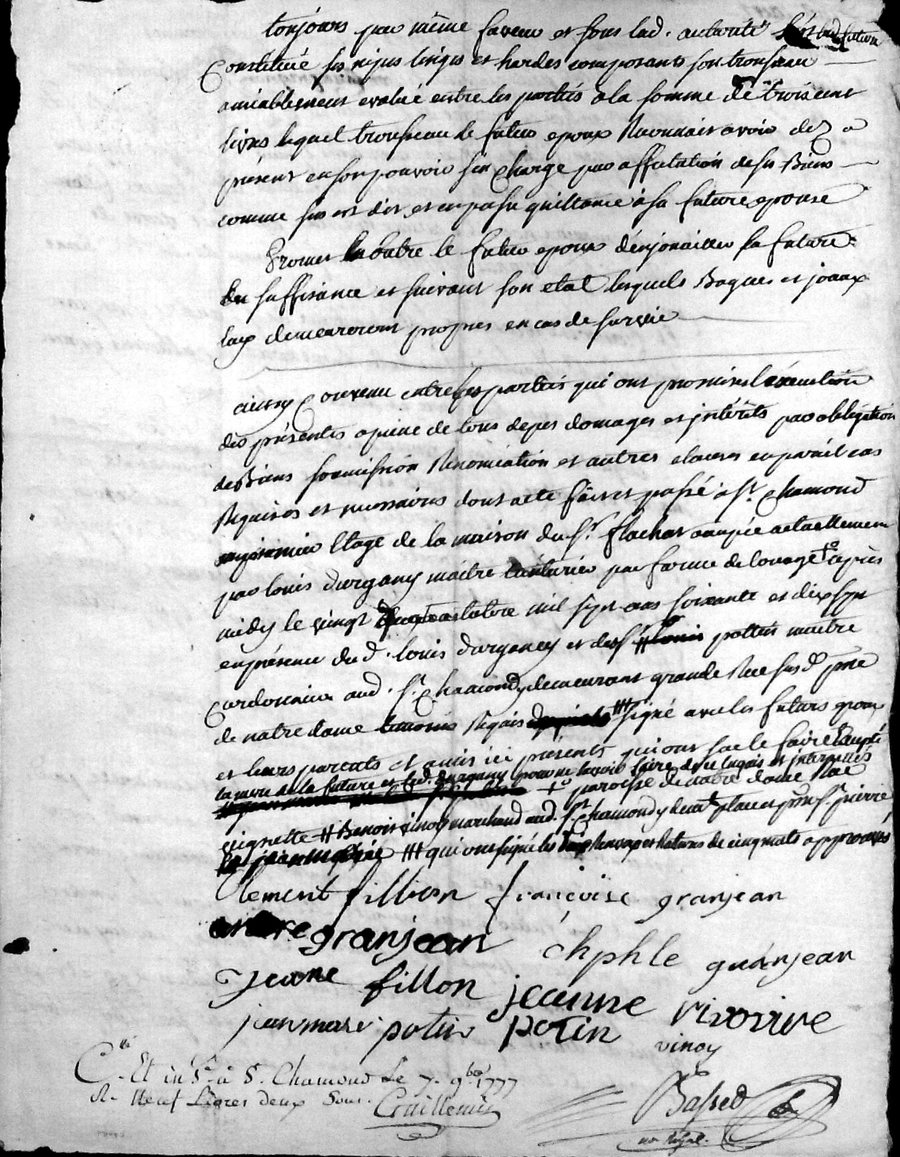 toujours par même faveur et sous lad. autorité s'est lad. future
Constitué ses nipes linges et hardes composants son trousseau
amiablement evalué entre les parties a la somme de trois cent
livres lequel trousseau le futur epoux Reconnait avoir dez a
présent en son pouvoir s'en charge par affectation de ses Biens
comme sus est dit, et en passe quittance à sa future epouse
Promet En outre le futur epoux d'enjouailler sa future
suffisance et suivant son etat lesquels Bagues et joaux
luy demeureront propres en cas de survie
ainsy Convenu entre les parties qui ont promis l'éxecution
des présentes a peine de tous depes domages et intérêts par obligation
de Biens soumission Renonciation et autres clauses en pareil cas
Requises et necessaires dont acte fait et passé a St. Chamond
au premier Etage de la maison du Sr. flachat occupée actuellement
par louis durgany maitre teinturier par forme de louage +° après
midy le vingt octobre mil sept cens soixante et dix sept
en présence du d. louis durgany et de Sr potin maitre
Cordonnier aud. St. Chamond y demeurant grande Rue susd. psse
de notre dame temoins Requis ### signé avec les futurs epoux
et leurs parents et amis ici présents qui ont scu le faire Excepté
la mere de la future et led. durgany pour ne scavoir faire de ce enquis et interpellés
+° paroisse de notre dame Rue
vignette # Benoit vinoy marchand aud. St Chamond y demt place et psse St. pierre
### qui ont signé les Renvoys et Ratures de cinq mots approuvés
Clement fillion françoise granjean
andre granjean chphle guranjean
Jeane fillon jeanne vivovive
jean mari potin potin vinoy
C.lé Et in.é à S. Chamond Le 7. 9bre 1777
R. Neuf Livres deux Sous.
Bassed
no. Royal.